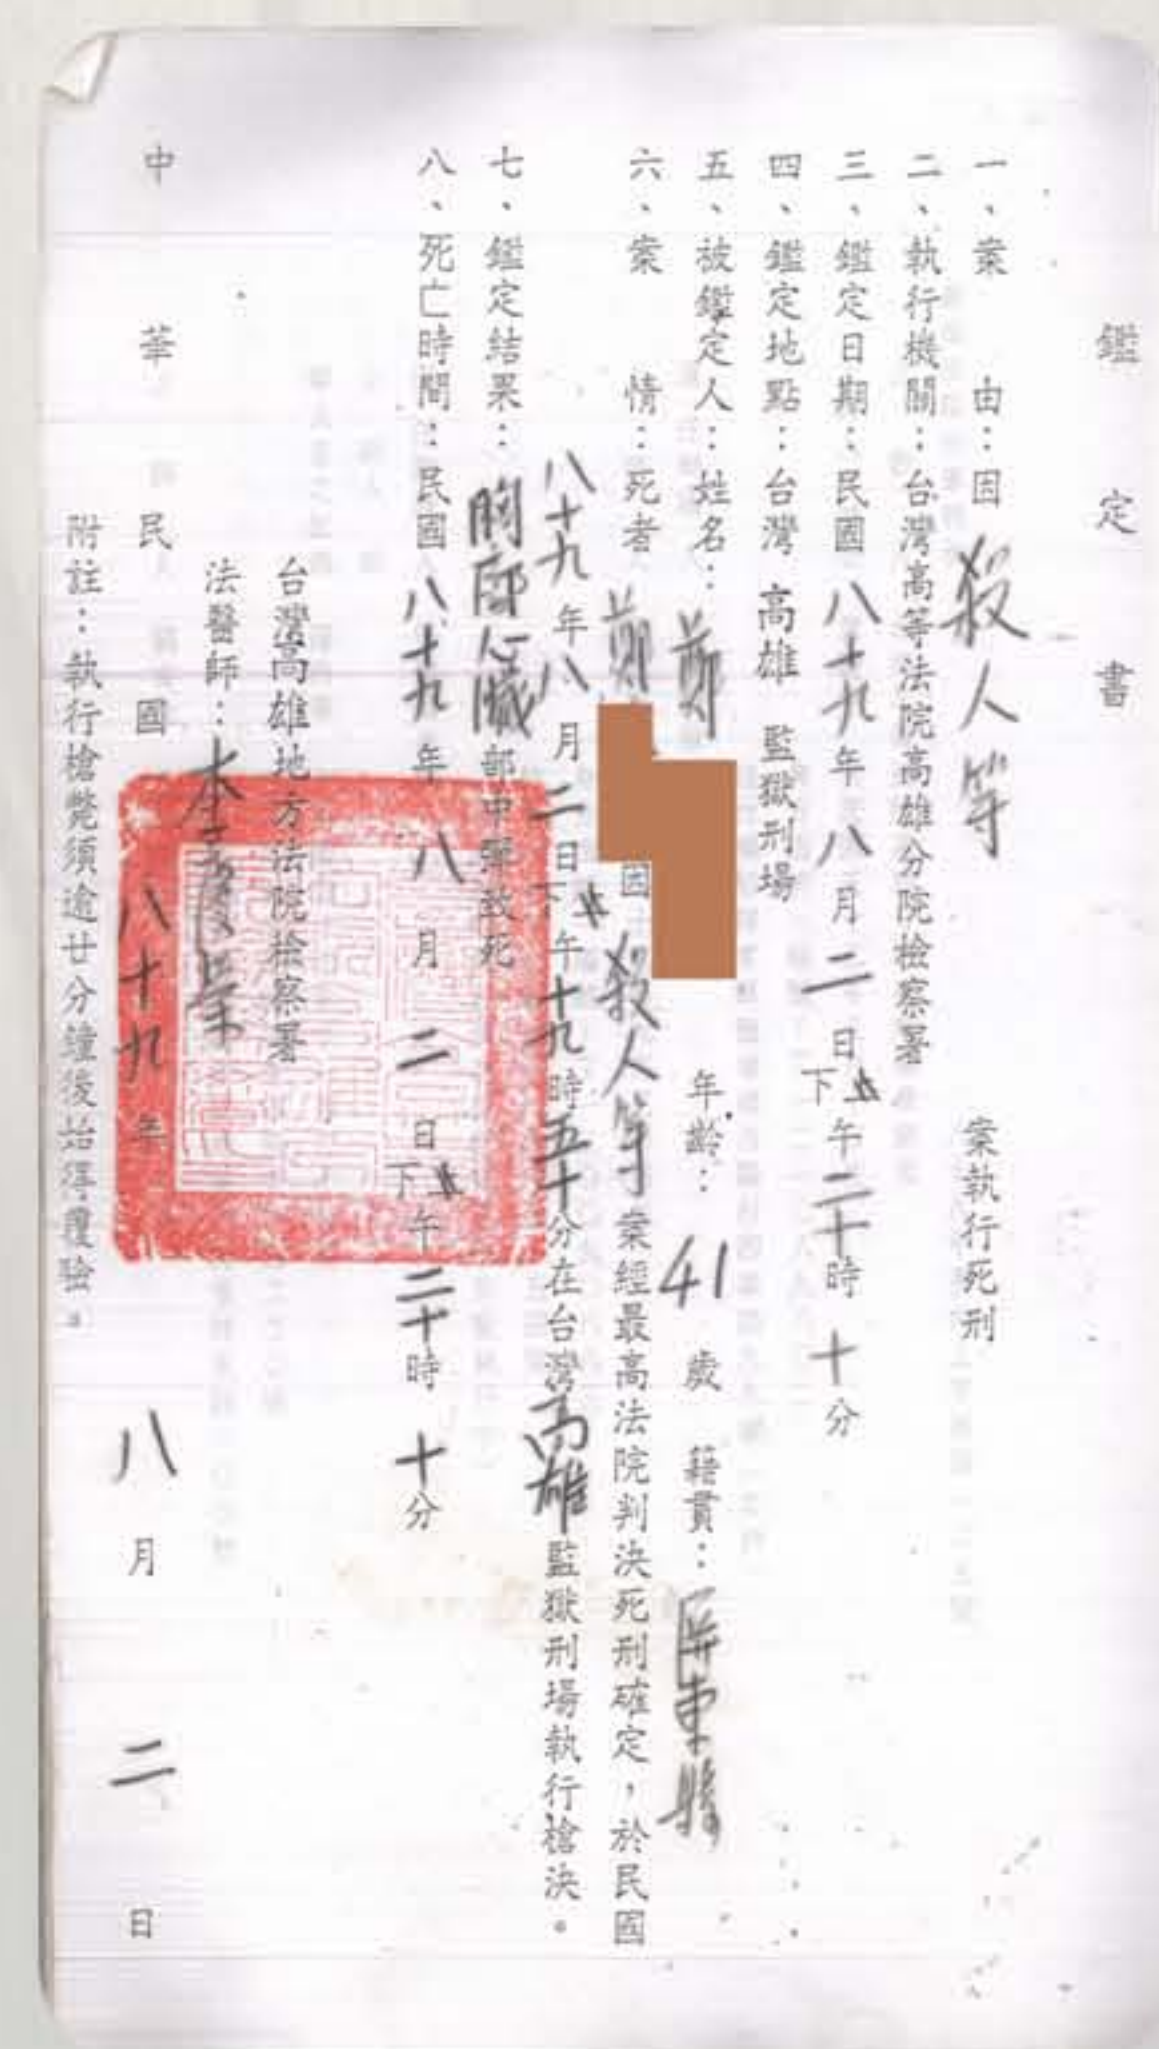 鑑定書
一、案　由：因殺人等　案執行死刑
二、執行機關：台灣高等法院高雄分院檢察署
三、鑑定日期：民國八十九年八月二日下午二十時十分
四、鑑定地點：台灣高雄監獄刑場
五、被鑑定人：姓名：鄭　年齡：41歲　籍貫：屏東縣
六、案　情：死者鄭　因殺人等案經最高法院判決死刑確定，於民國
八十九年八月二日下午十九時五十分在台灣高雄監獄刑場執行槍決。
七、鑑定結果：胸部心臟部中彈致死
八、死亡時間：民國八十九年八月二日下午二十時十分
台灣高雄地方法院檢察署
法醫師：
中華民國八十九年八月二日
附註：執行槍斃須逾廿分鐘後始得覆驗。